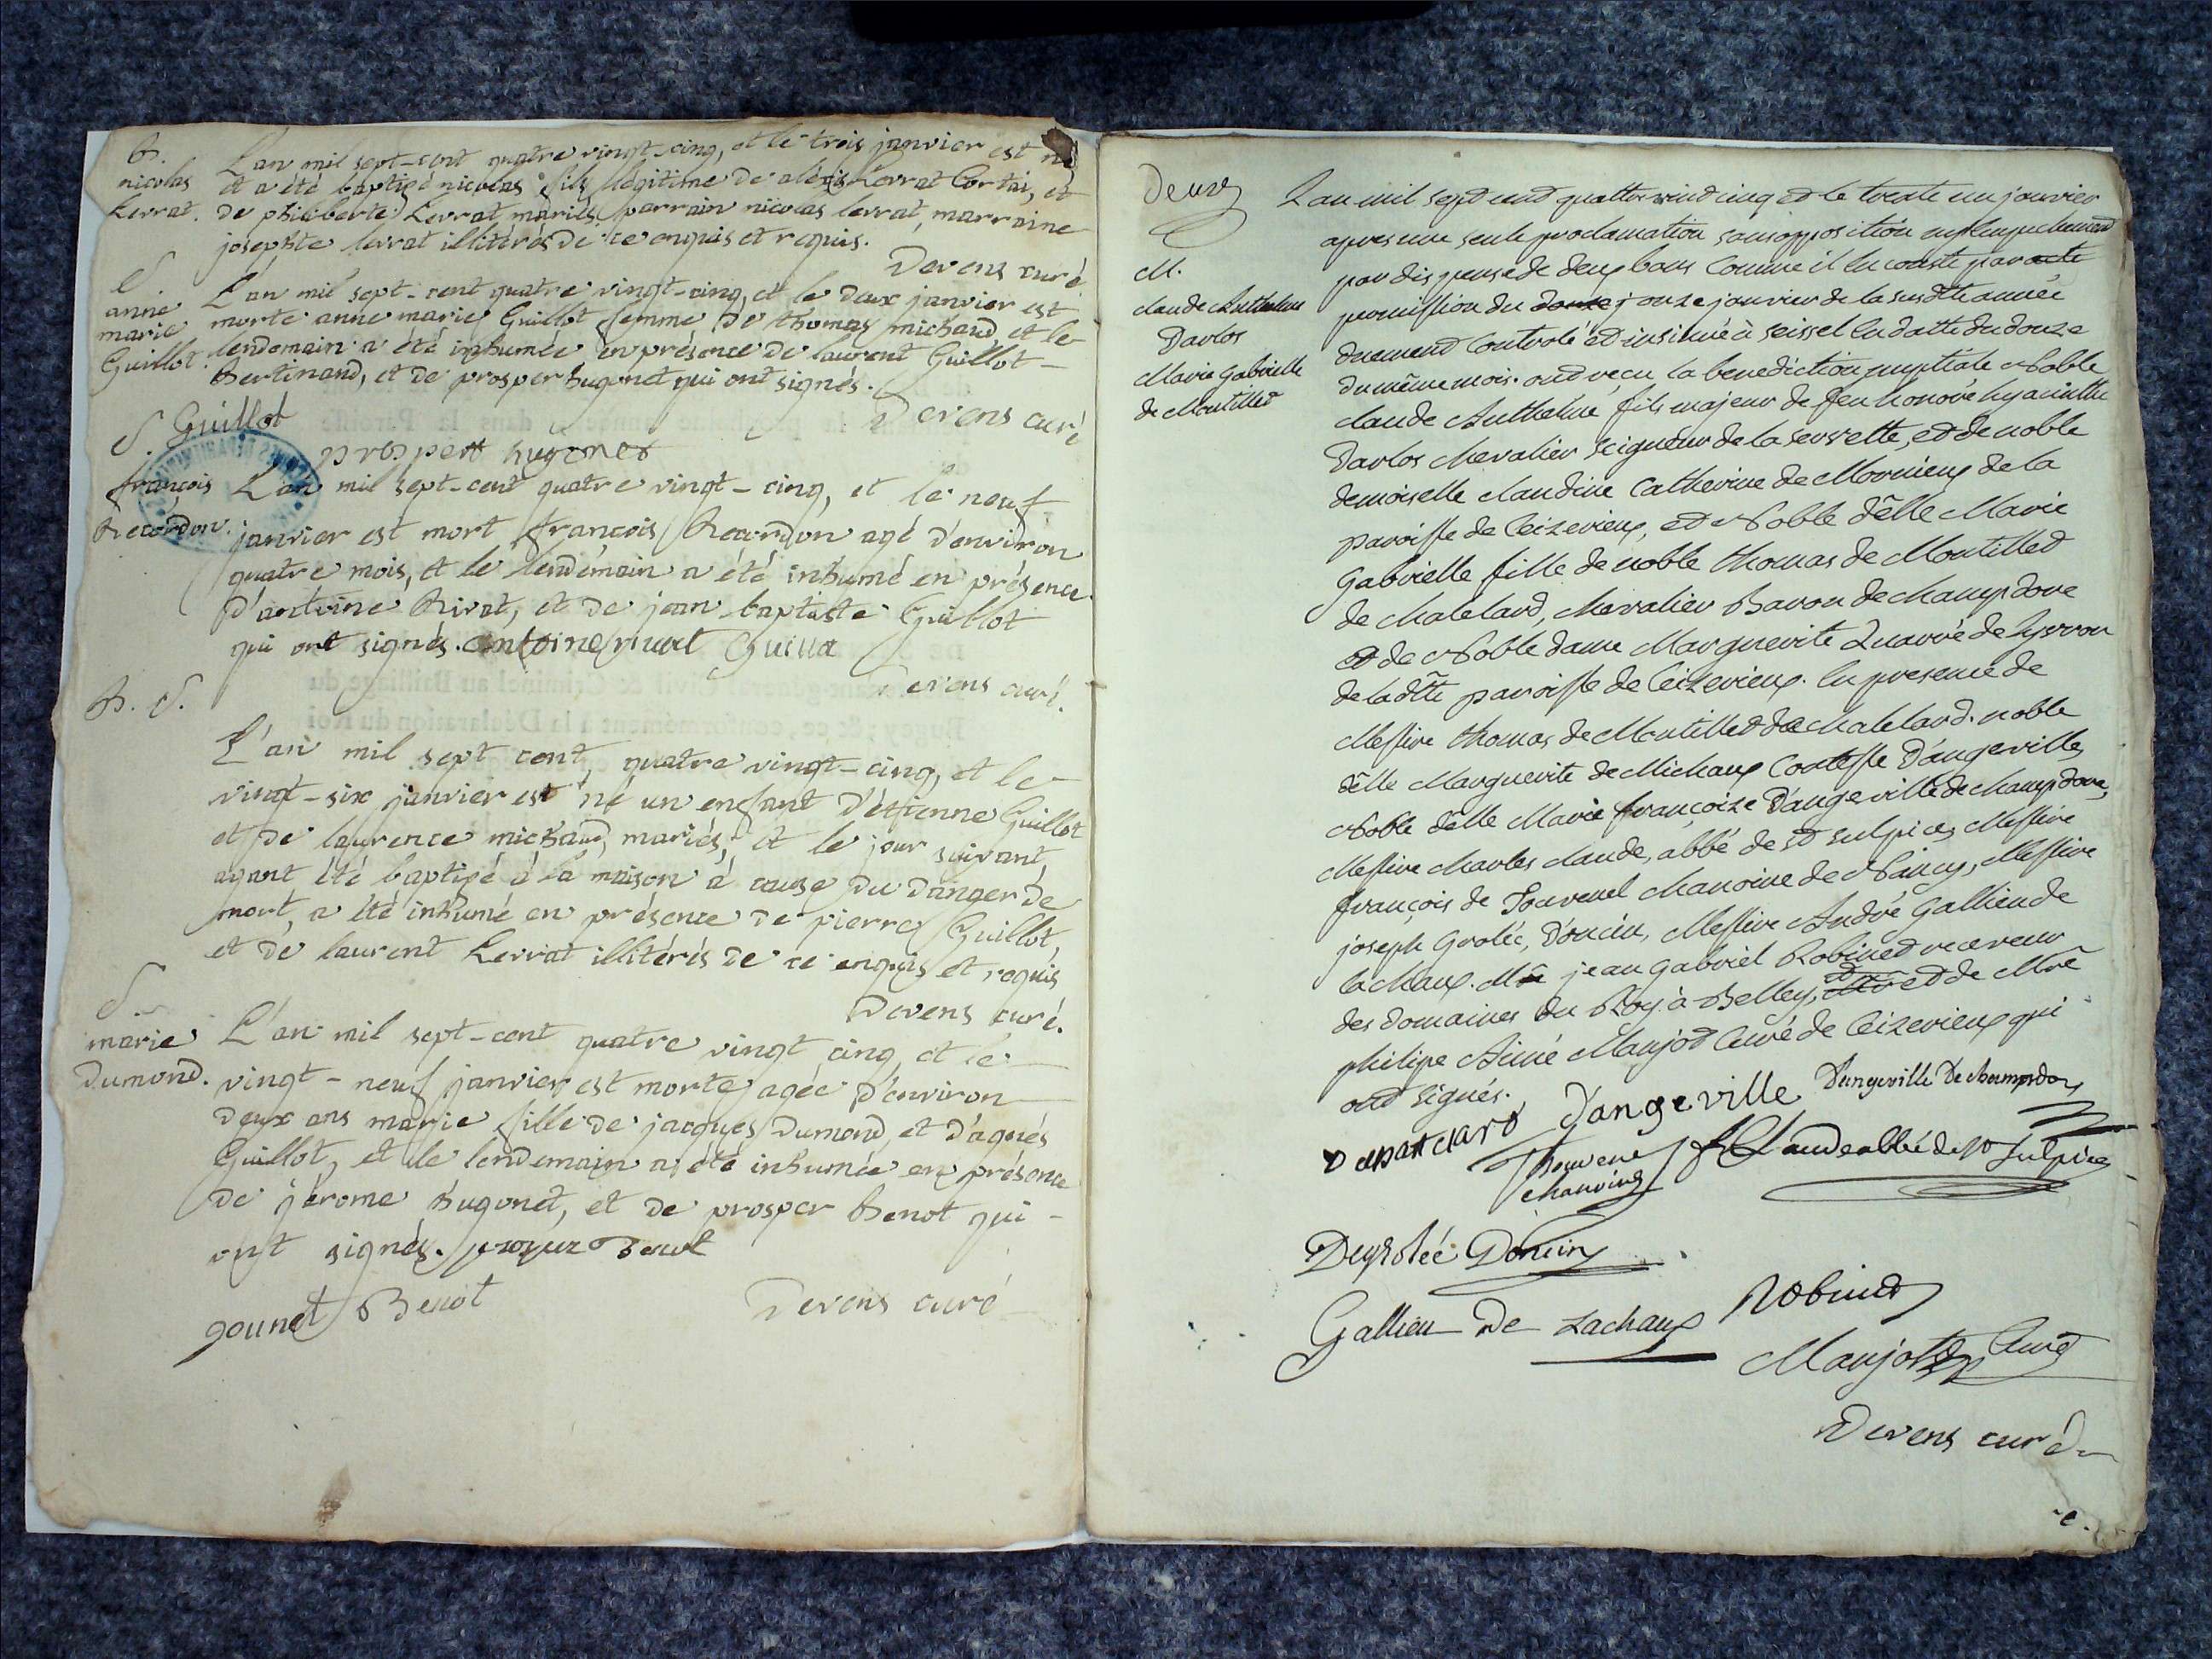 B.
nicolas
Lerrat.
L'an mil sept-cent quatre vingt-cinq, et le trois janvier est né
et a été baptisé nicolas fils légitime de aléxis Lerrat Cortai, et
de philiberte Lerrat mariés, parrain nicolas lerrat, marraine
josephte lerrat illitérés de ce enquis et requis.
Devens curé
S.
anne
marie
Guillot.
L'an mil sept-cent quatre vingt-cinq, et le deux janvier est
morte anne marie Guillot femme de thomas michaud, et le
lendemain a été inhumée en présence de laurent Guillot-
Bertinand, et de prosper hugonet qui ont signés.
Devens curé
Guillot
prosper hugonet
S.
françois
Recordon.
L'an mil sept-cent quatre vingt-cinq, et le neuf
janvier est mort françois Recordon agé d'environ
quatre mois, et le lendemain a été inhumé en présence
d'antoine Rivat, et de jean baptiste Guillot
qui ont signés. antoine rivat Guillot
Devens curé.
B. S.
L'an mil sept cent quatre vingt-cinq, et le
vingt-six janvier est né un enfant d'étienne Guillot
et de laurence michaud, mariés, et le jour suivant,
ayant été baptisé à la maison à cause du danger de
mort, a été inhumé en présence de pierre Guillot,
et de laurent Lerrat illitérés de ce enquis et requis
Devens curé.
S.
marie
Dumond.
L'an mil sept-cent quatre vingt cinq, et le
vingt-neuf janvier est morte agée d'environ
deux ans marie fille de jacques Dumond, et d'agnés
Guillot, et le lendemain a été inhumée en présence
de jérome hugonet, et de prosper Benot qui
ont signés. prosper Benot
gounet Benot
Devens curé
Deux
M.
claude Anthelme
Darlos
Marie Gabrielle
de Montillet
L'an mil sept cend quattre vind cinq et le trente un janvier
apres une seule proclamation sans opposition ny empechement
par dispense de deux bans comme il en conste par acte
permission du douze onze janvier de la susdite année
duement controlé et insinué à seissel en datte du douze
du même mois. ond reçu la benediction nuptiale Noble
claude Anthelme fils majeur de feu honoré hyacinthe
Darlos chevalier seigneur de la servette, et de noble
demoiselle claudine Catherine de Mornieux de la
paroisse de Ceizerieux, et Noble d'elle Marie
Gabrielle fille de noble thomas de Montillet
de chatelard, chevalier Baron de champdore
et de Noble dame Marguerite Quarré de
de la dte paroisse de Ceizerieux. En presence de
Messire thomas de Montillet de chatelard. noble
d'elle Marguerite de Michaux Comtesse D'angeville,
Noble d'elle Marie françoise D'angeville de champdore,
Messire charles claude, abbé de st sulpice, Messire
françois de Jouvenel chanoine de Nancy, Messire
joseph Grolée, Doncin, Messire André Gallien de
la chaux. Me jean Gabriel Robinet receveur
des domaines du Roy à Belley, et de Mre
philipe Aimé Manjot Curé de Ceizerieux qui
ond signés.
D'angeville
Dangeville De champdore
Jouvenel
chanoine
f Claude abbé de st Sulpice
De grolée Doncin
Gallien De Lachaux
Robinet
Manjot Curé
Devens curé